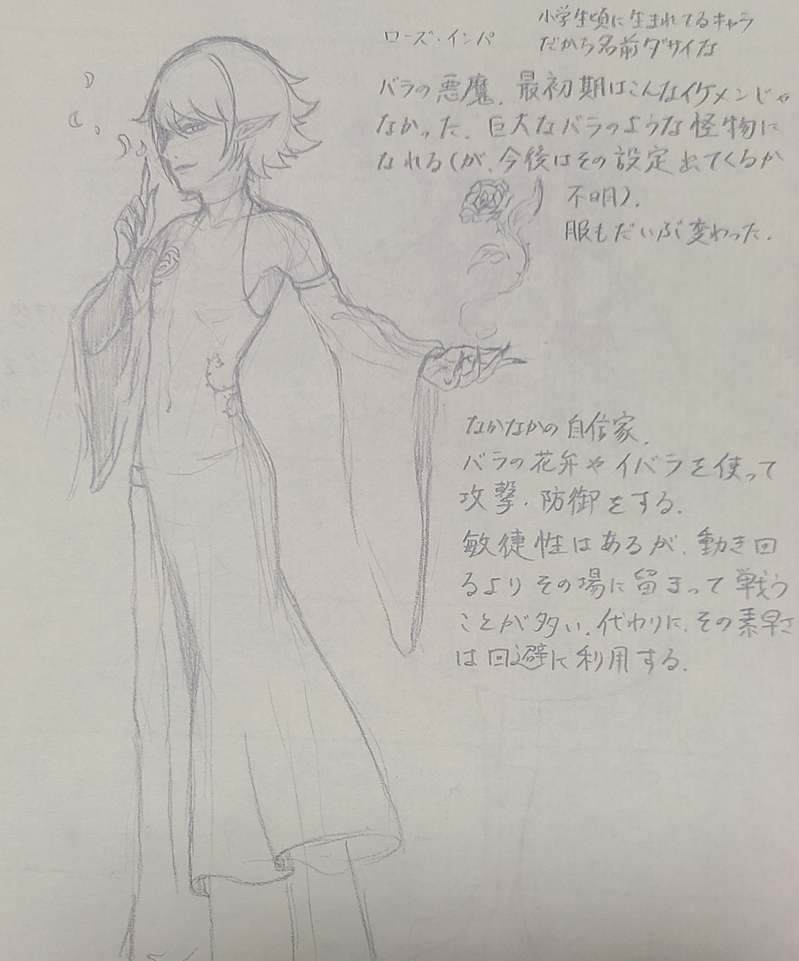 ローズ・インパ
小学生頃に生まれてるキャラ
だから名前ダサイな
バラの悪魔、最初期はこんなイケメンじゃ
なかった、巨大なバラのような怪物に
なれる(が、今後はその設定出てくるか
不明)、
服もだいぶ変わった.
なかなかの自信家、
バラの花弁やイバラを使って
攻撃・防御をする.
敏捷性はあるが、動き回
るよりその場に留まって戦う
ことが多い、代わりに、その素早さ
は回避に利用する.